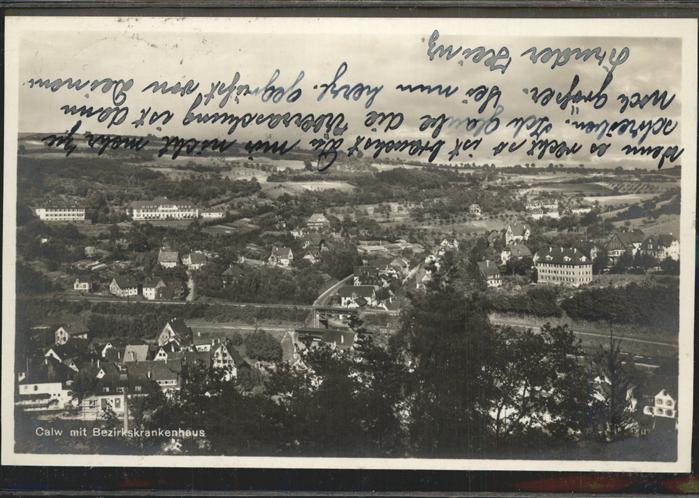 Wenn es recht so ist brauchst Du mir nicht mehr zu
schreiben. Ich glaube die Überraschung ist dann
noch größer. Sei nun herzl. gegrüßt von Deinem
Bruder Heinz.
Calw mit Bezirkskrankenhaus